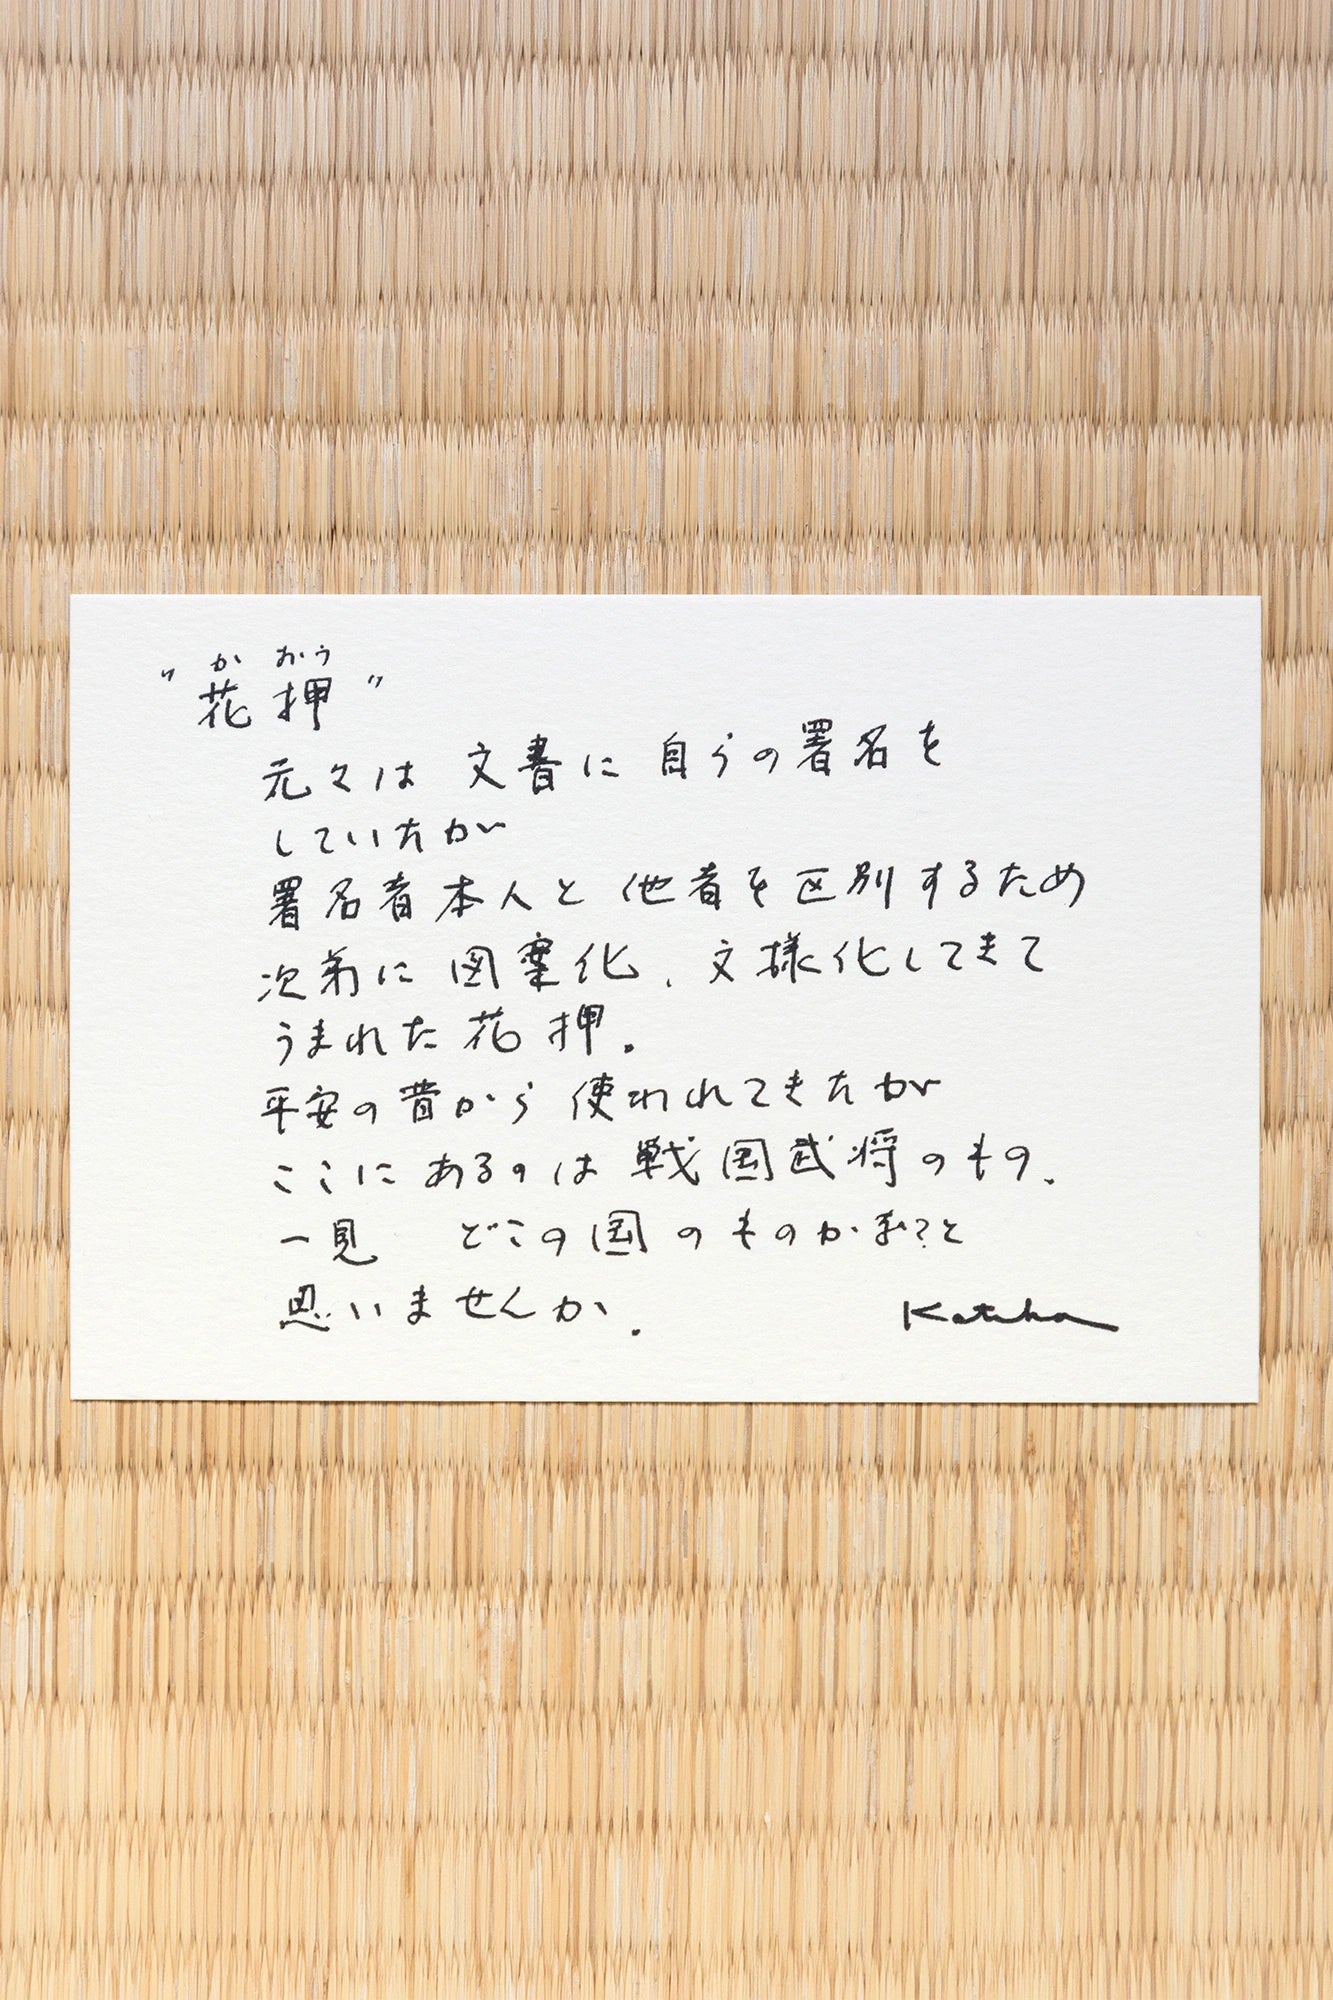 かおう
"花押"
元々は 文書に 自らの署名を
していたが
署名者本人と 他者を区別するため
次第に 図案化、文様化してきて
うまれた 花押.
平安の昔から 使われてきたが
ここに あるのは 戦国武将のもの、
一見 どこの国のものかな?と
思いませんか.